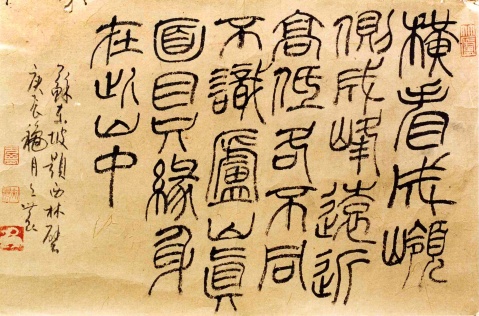 橫看成嶺
側成峰遠近
高低各不同
不識廬山眞
面目只緣身
在此山中
蘇東坡題西林壁
庚辰 月之